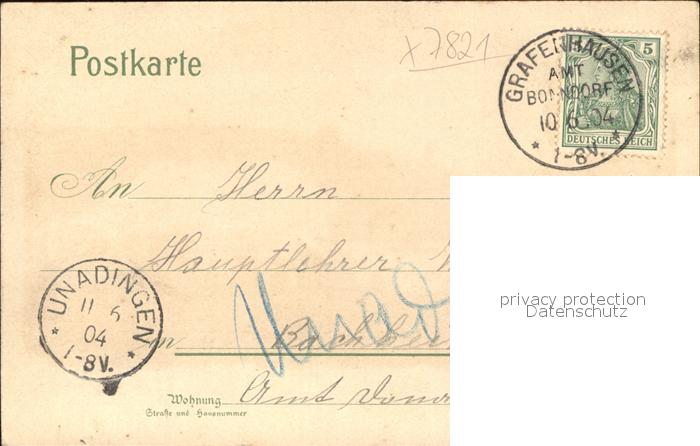 x 7821
Postkarte
GRAFENHAUSEN
AMT
BONNDORF
10 6 04
* 1-8V. *
5
DEUTSCHES REICH
An Herrn
Hauptlehrer
privacy protection
Datenschutz
UNADINGEN
11 6
04
* 1-8V. *
in
Wohnung
Straße und Hausnummer
Amt